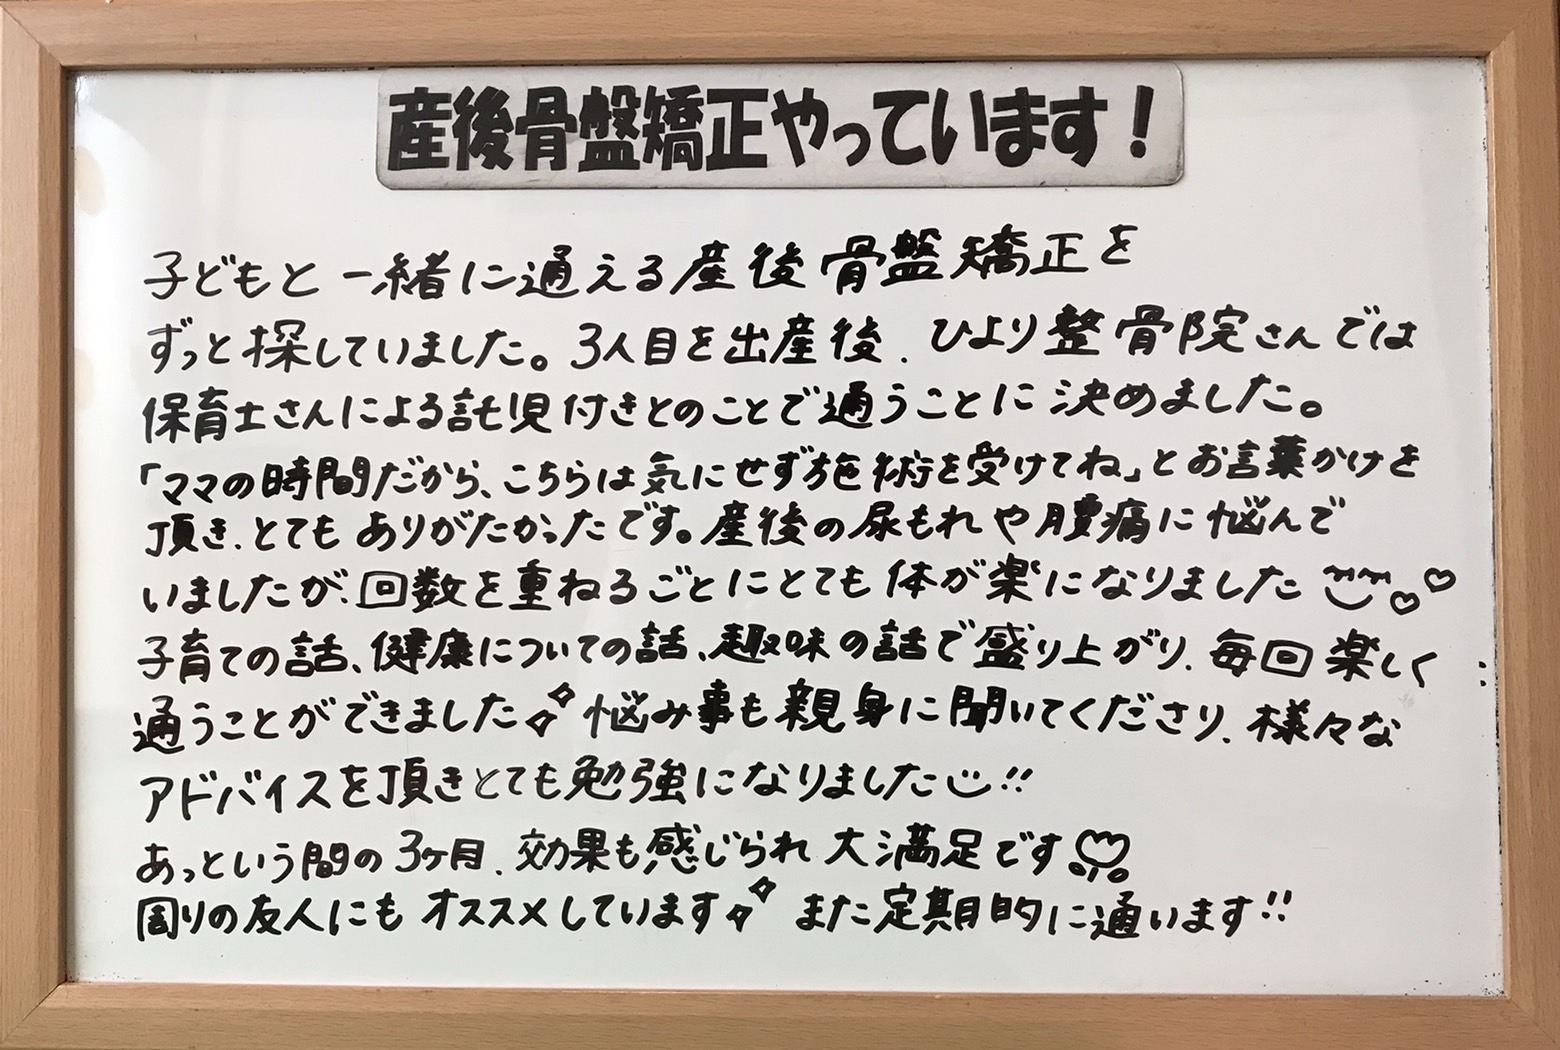 産後骨盤矯正やっています!
子どもと一緒に通える産後骨盤矯正を
ずっと探していました。3人目を出産後、ひより整骨院さんでは
保育士さんによる託児付きとのことで通うことに決めました。
「ママの時間だから、こちらは気にせず施術を受けてね」とお言葉かけを
頂き、とてもありがたかったです。産後の尿もれや腰痛に悩んで
いましたが、回数を重ねるごとにとても体が楽になりました
子育ての話、健康についての話、趣味の話で盛り上がり、毎回楽しく
通うことができました 悩み事も親身に聞いてくださり、様々な
アドバイスを頂きとても勉強になりました!!
あっという間の3ヶ月、効果も感じられ大満足です
周りの友人にもオススメしています また定期的に通います!!